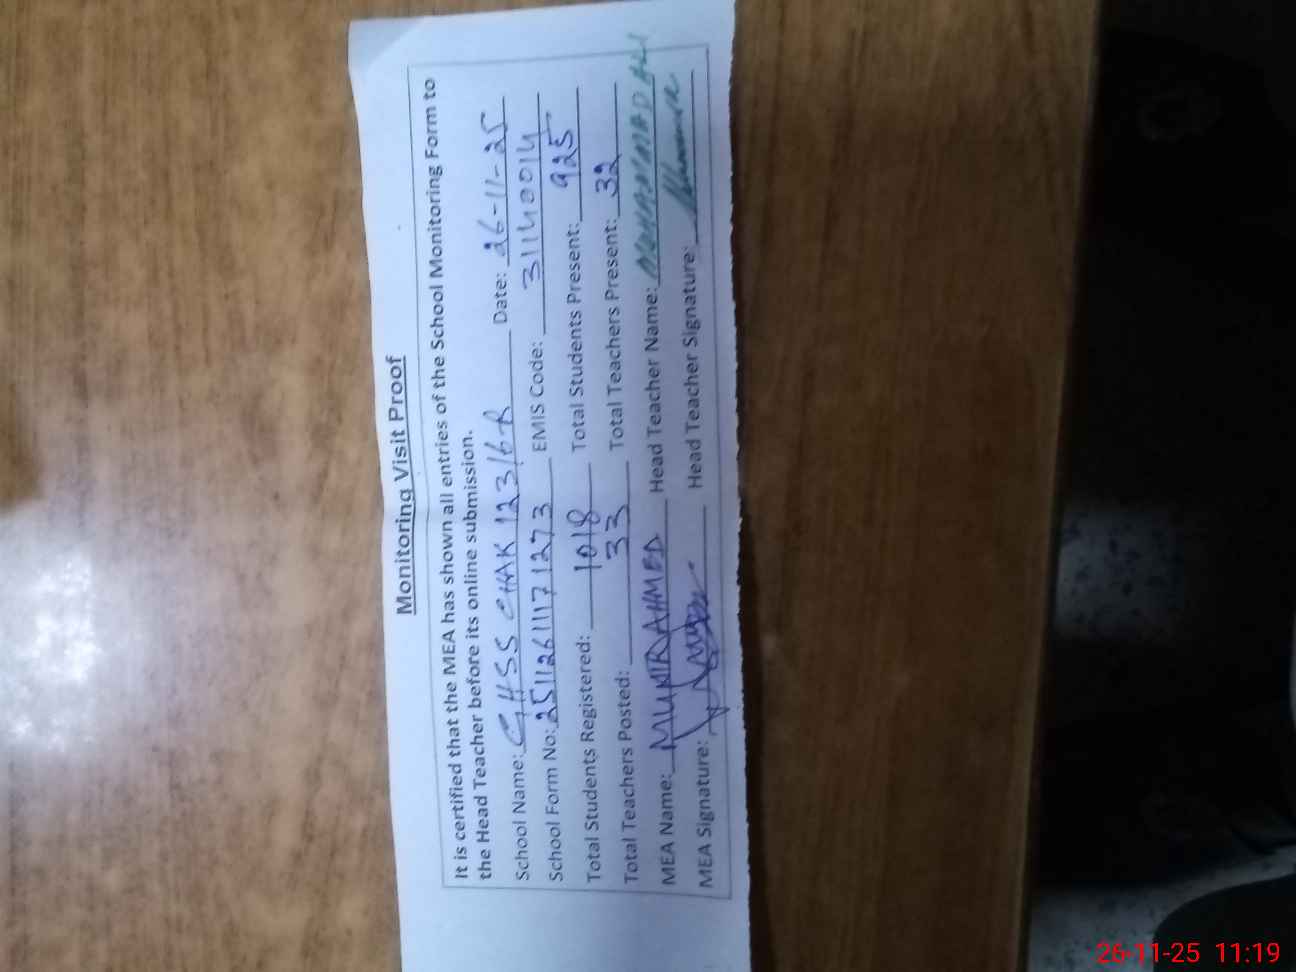 Monitoring Visit Proof
It is certified that the MEA has shown all entries of the School Monitoring Form to
the Head Teacher before its online submission.
School Name: GHSS CHAK 123/6R Date: 26-11-25
School Form No: 251126111171273 EMIS Code: 31140014
Total Students Registered: 1018 Total Students Present: 925
Total Teachers Posted: 33 Total Teachers Present: 32
MEA Name: MUNIR AHMED Head Teacher Name: MUHAMMAD ALI
MEA Signature: Head Teacher Signature:
26-11-25 11:19